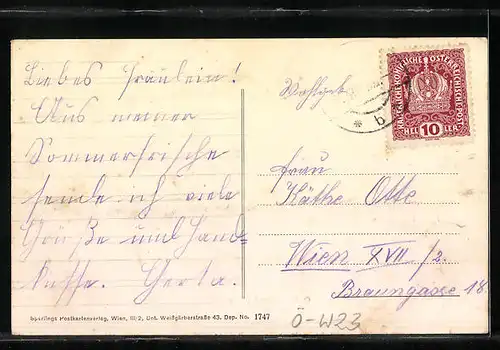 Liebes Fräulein!
Aus meiner
Sommerfrische
sende ich viele
Grüße und Hand-
küsse. Gerta.
Wohlgeb.
Frau
Käthe Otte
Wien XVII/2.
Braungasse 18.
KAISERLICHE KÖNIGLICHE ÖSTERREICHISCHE POST
HELLER
10
* b
Sperlings Postkartenverlag, Wien, III/2, Unt. Weißgärberstraße 43. Dep. No. 1747
Ö-W23